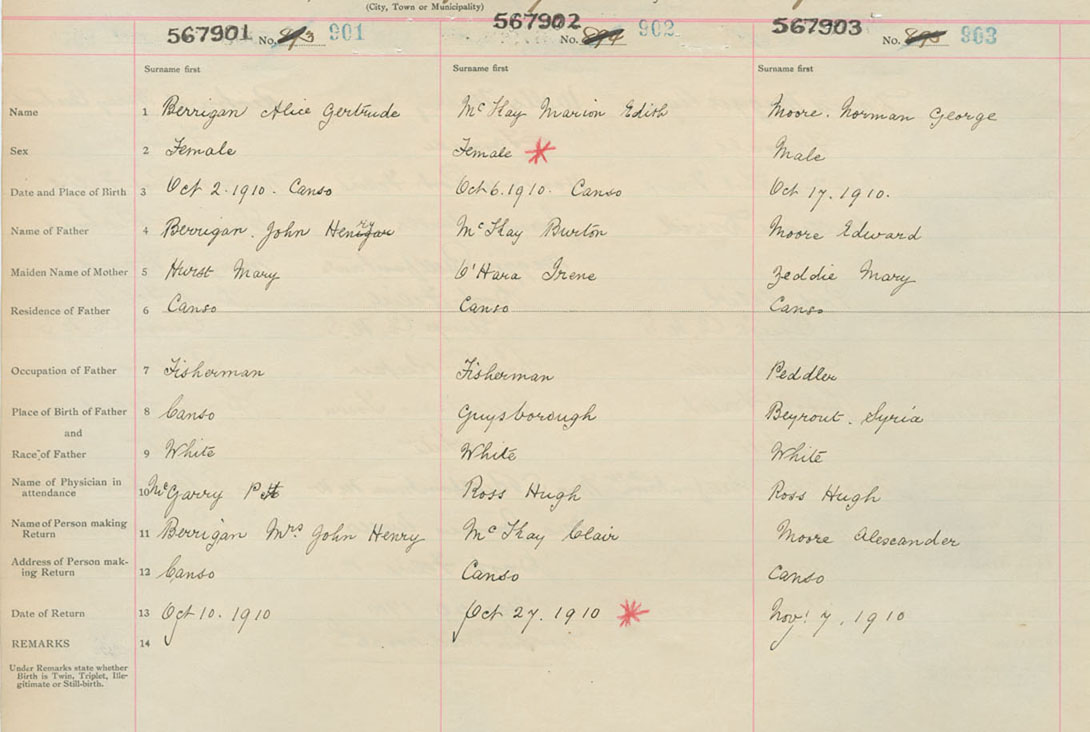 (City, Town or Municipality)
567901 No. 901 567902 No. 902 567903 No. 903
Surname first Surname first Surname first
Name 1 Berrigan Alice Gertrude McKay Marion Edith Moore. Norman George
Sex 2 Female Female Male
Date and Place of Birth 3 Oct 2. 1910. Canso Oct 6. 1910. Canso Oct 17. 1910.
Name of Father 4 Berrigan. John Henry McKay Burton Moore Edward
Maiden Name of Mother 5 Hurst Mary O'Hara Irene Zeddie Mary
Residence of Father 6 Canso Canso Canso
Occupation of Father 7 Fisherman Fisherman Peddler
Place of Birth of Father 8 Canso Guysborough Beyrout. Syria
and
Race of Father 9 White White White
Name of Physician in
attendance 10 McGarry Ross Hugh Ross Hugh
Name of Person making
Return 11 Berrigan Mrs John Henry McKay Clair Moore Alexander
Address of Person mak-
ing Return 12 Canso Canso Canso
Date of Return 13 Oct 10. 1910 Oct 27. 1910 Nov. 7, 1910
REMARKS 14
Under Remarks state whether
Birth is Twin, Triplet, Ille-
gitimate or Still-birth.